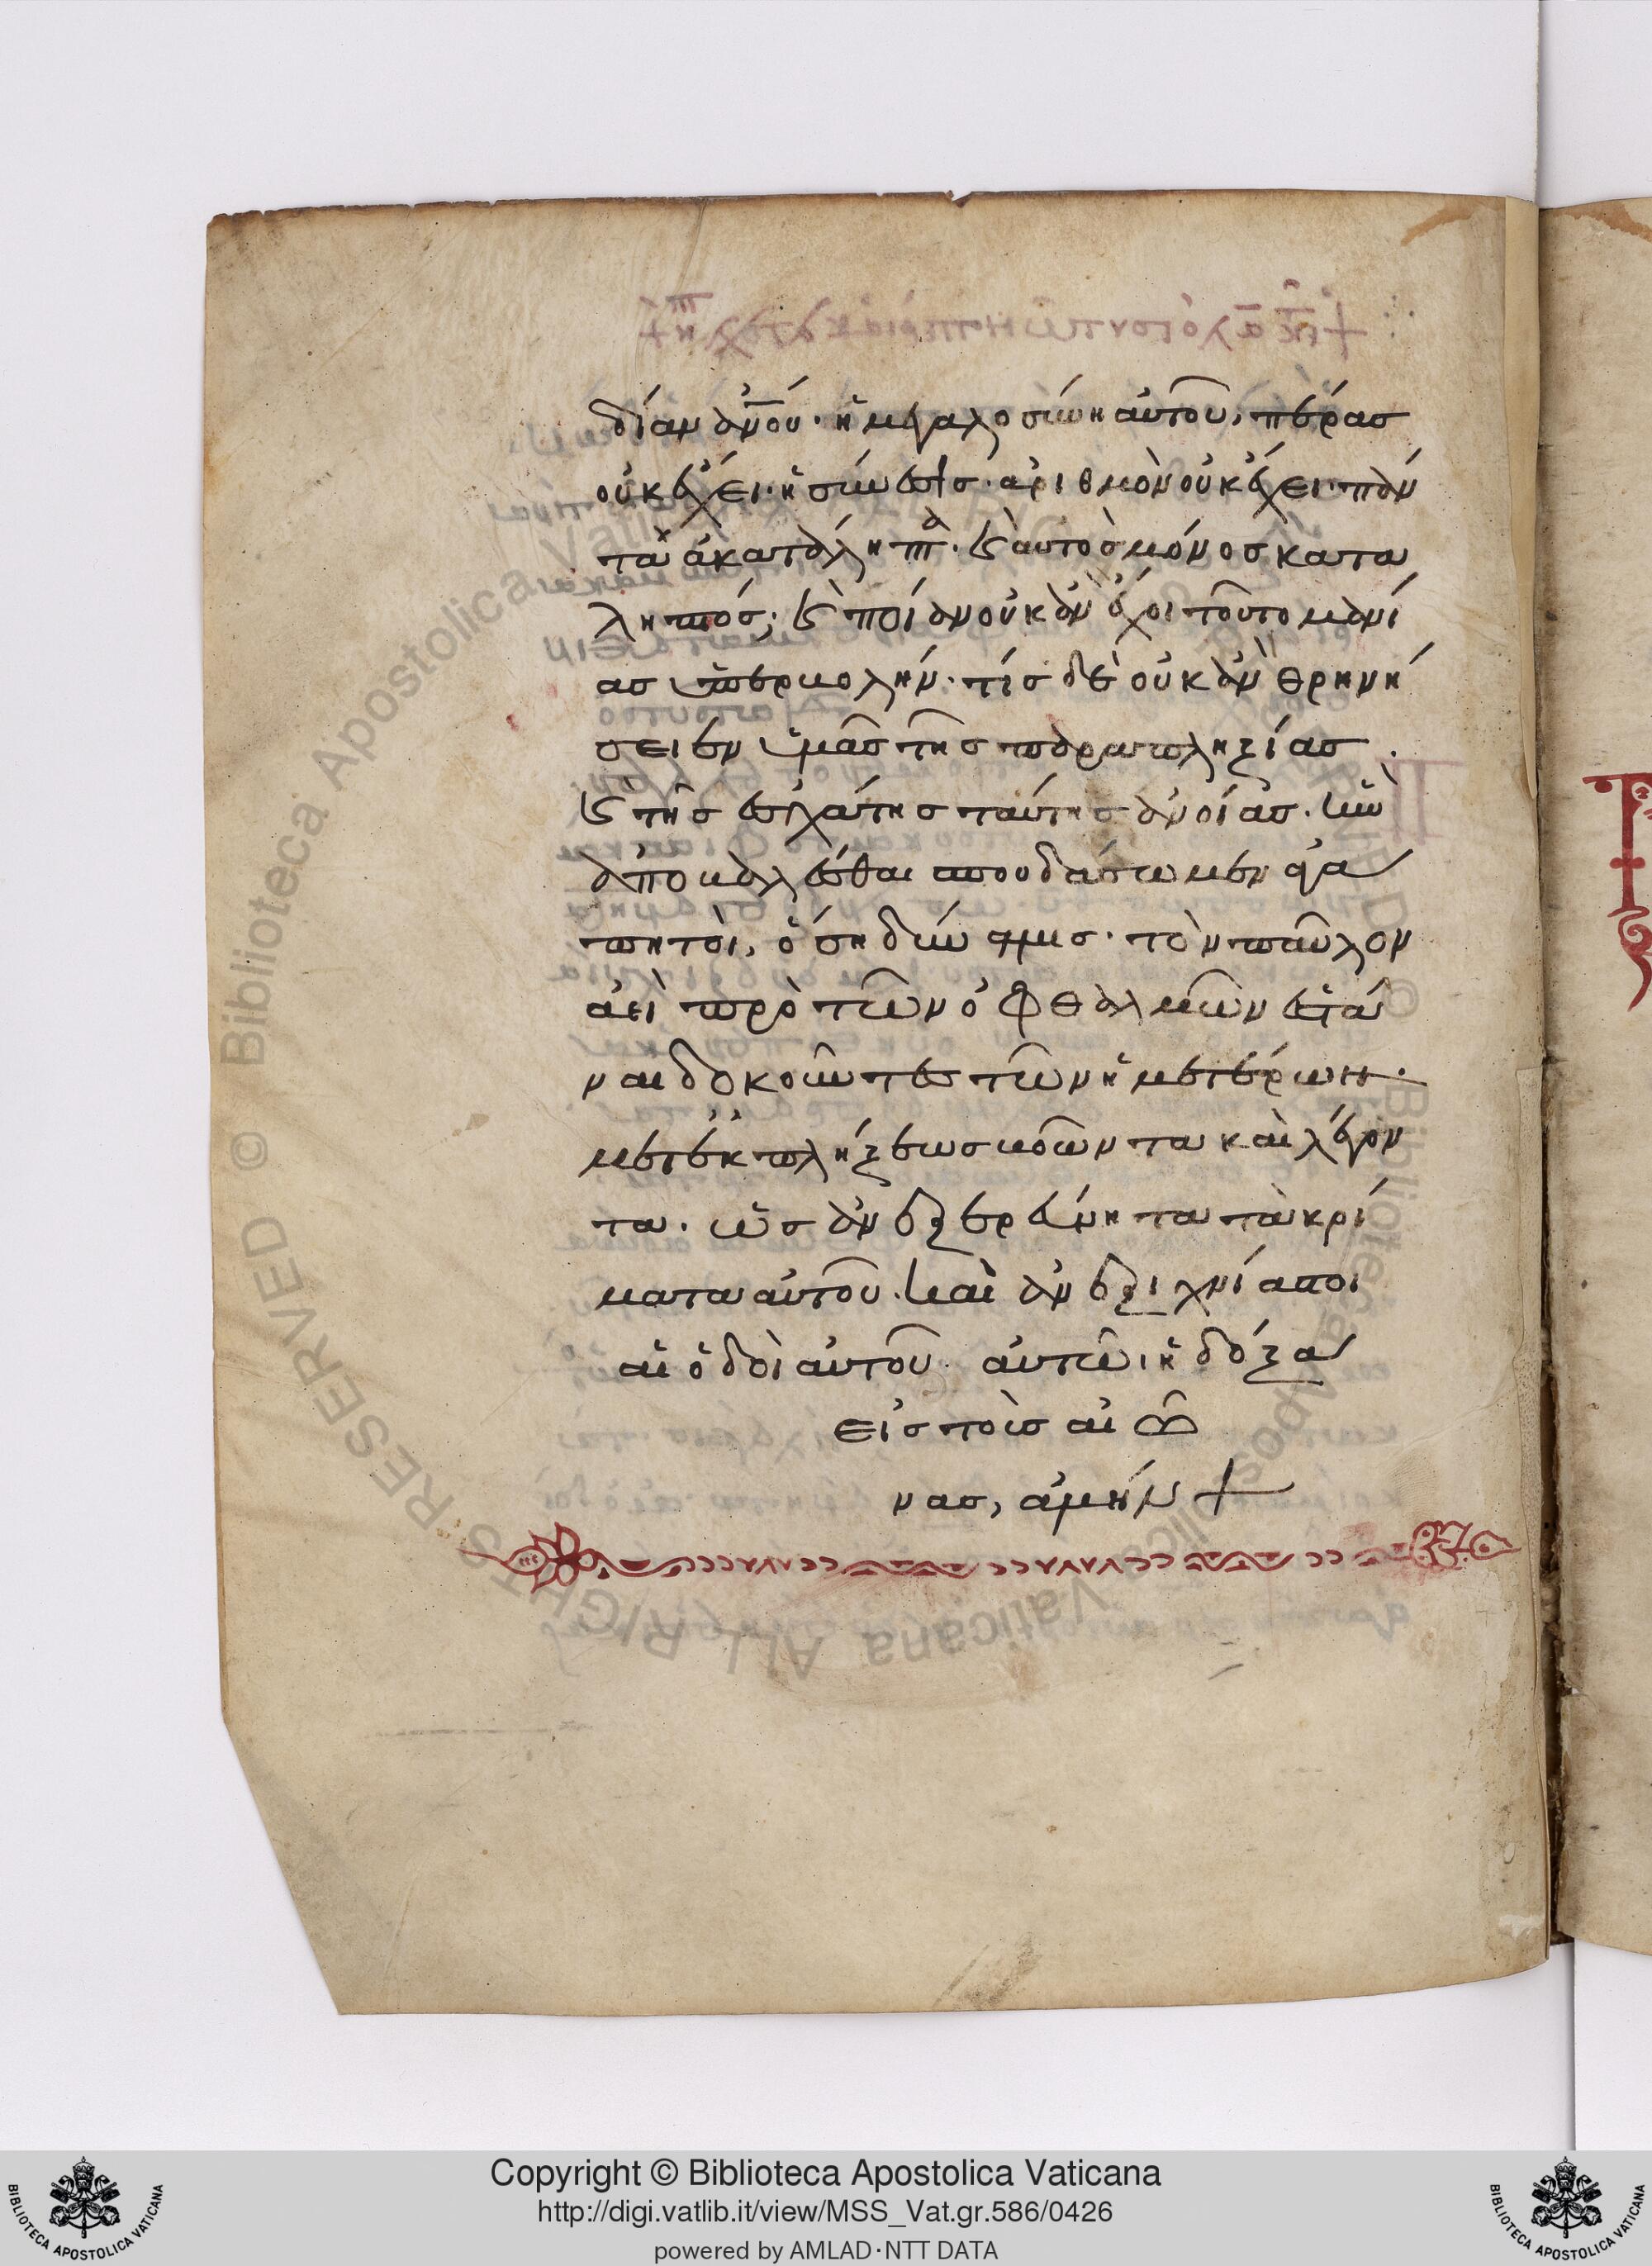 δίαν ἀν̅ο̅ύ· ἡ μεγαλοσύνη αὐτοῦ, πέρας
οὐκ ἔχει· ἡ σύνεσις· ἀριθμὸν οὐκ ἔχει· πάν
τα ἀκατάληπτα· καὶ αὐτὸς μόνος κατα
ληπτός; καὶ ποίαν οὐκ ἂν ἔχοι τοῦτο μανί
ας ὑπερβολήν· τίς δὲ οὐκ ἂν θρηνή
σειεν ὑμᾶς τῆς παραπληξίας.
καὶ τῆς ἐσχάτης ταύτης ἀνοίας. ἣν
ἀποβαλέσθαι σπουδάσωμεν ἀγα
πητοὶ, ὅση δύναμις· τὸν παῦλον
ἀεὶ πρὸ τῶν ὀφθαλμῶν ἑστά
ναι δοκοῦντες τῶν ἡμετέρων.
μετ' ἐκπλήξεως βοῶντα καὶ λέγον
τα· ὡς ἀνεξερεύνητα τὰ κρί
ματα αὐτοῦ. καὶ ἀνεξιχνίαστοι
αἱ ὁδοὶ αὐτοῦ· αὐτῶι ἡ δόξα
εἰς τοὺς αἰῶ
νας, ἀμήν +
Copyright © Biblioteca Apostolica Vaticana
http://digi.vatlib.it/view/MSS_Vat.gr.586/0426
powered by AMLAD·NTT DATA
BIBLIOTECA APOSTOLICA VATICANA
BIBLIOTECA APOSTOLICA VATICANA
© Biblioteca Apostolica Vaticana ALL RIGHTS RESERVED